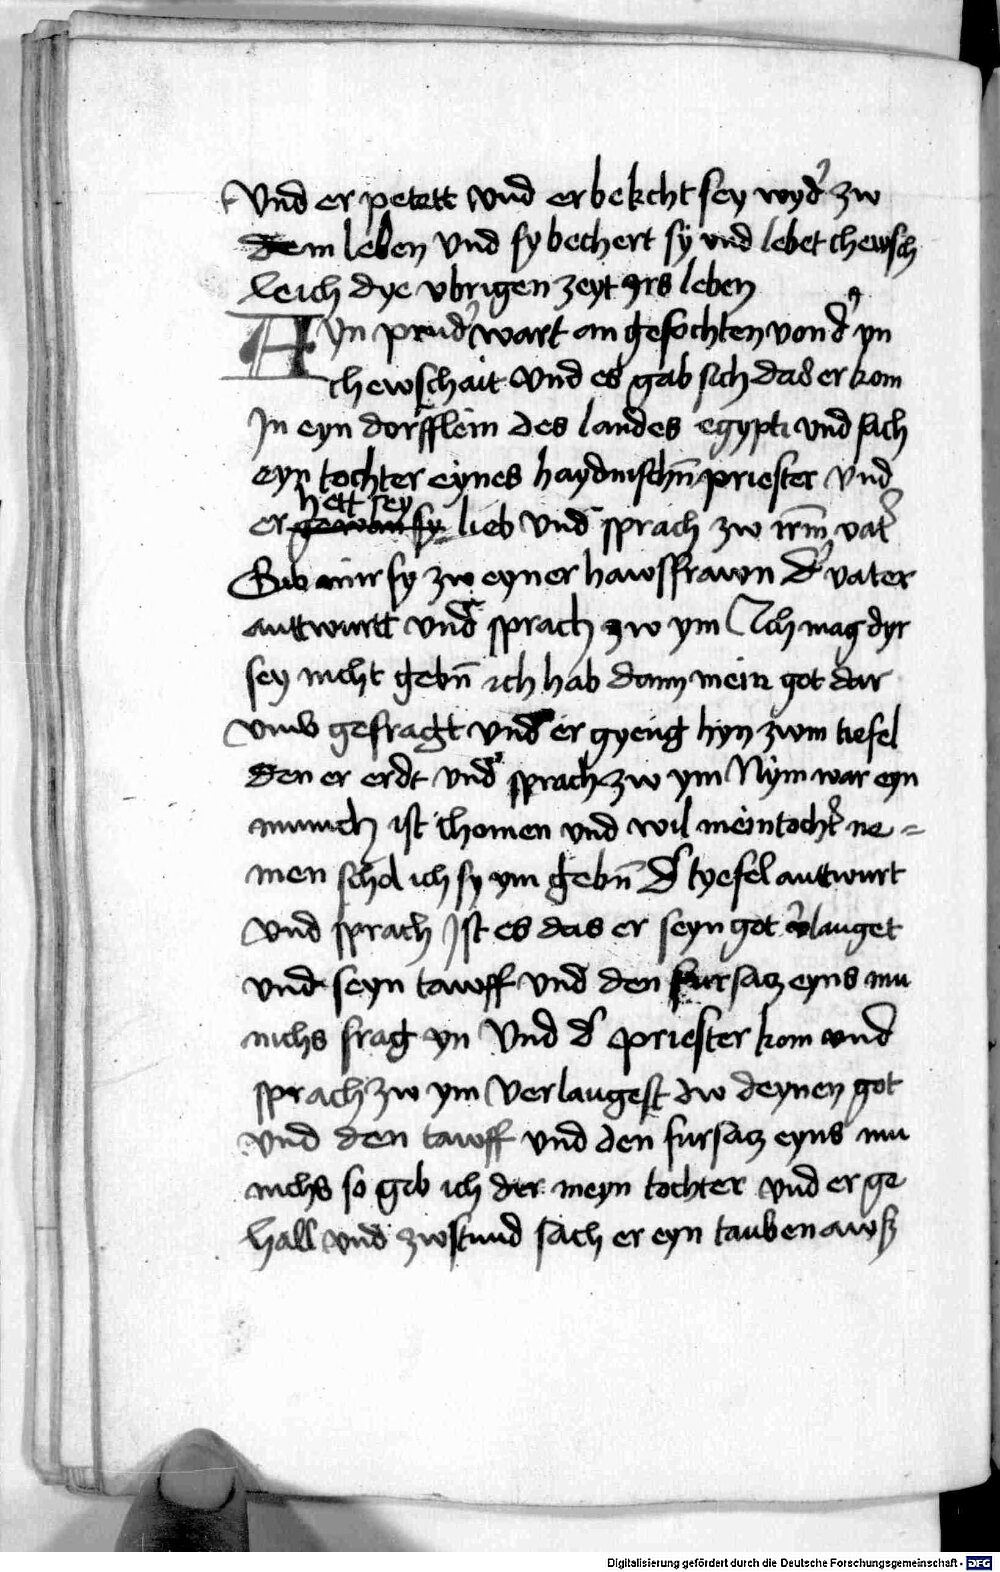 Vnd er petett vnd erbekcht sey wyd' zw
dem leben vnd sy bechert sy vnd lebet chewsch
leich dye vbrigen zeyt yrs leben
Ayn prud' wart an gefochten von d' vn
chewschait vnd es gab sich das er kom
In eyn dorfflein des landes egypti vnd sach
eyn tochter eynes haydnischn̄ priester vnd
hett sey
er gewan sy lieb vnd sprach zw irm̄ vat'
Gib mir sy zw eyner hawsfrawn d' vater
anttwurtt vnd sprach zw ym Ich mag dyr
sey nicht gebn̄ ich hab dann mein got dar
vmb gefragt vnd er gyeng hyn zwm tiefel
den er erdt vnd sprach zw ym Nym war eyn
munich ist chomen vnd wil mein tocht' ne =
men schol ich sy ym gebn̄ d' tyefel antwurt
vnd sprach Ist es das er seyn got v'lauget
vnd seyn tawff vnd den fursacz eyns mu
nichs frag yn Vnd d' priester kom vnd
sprach zw ym Verlaugest dw deynen got
vnd den tawff vnd den fursacz eyns mu
nichs so gib ich dir meyn tochter vnd er ge
hall vnd zwstund sach er eyn tauben awß
Digitalisierung gefördert durch die Deutsche Forschungsgemeinschaft - DFG